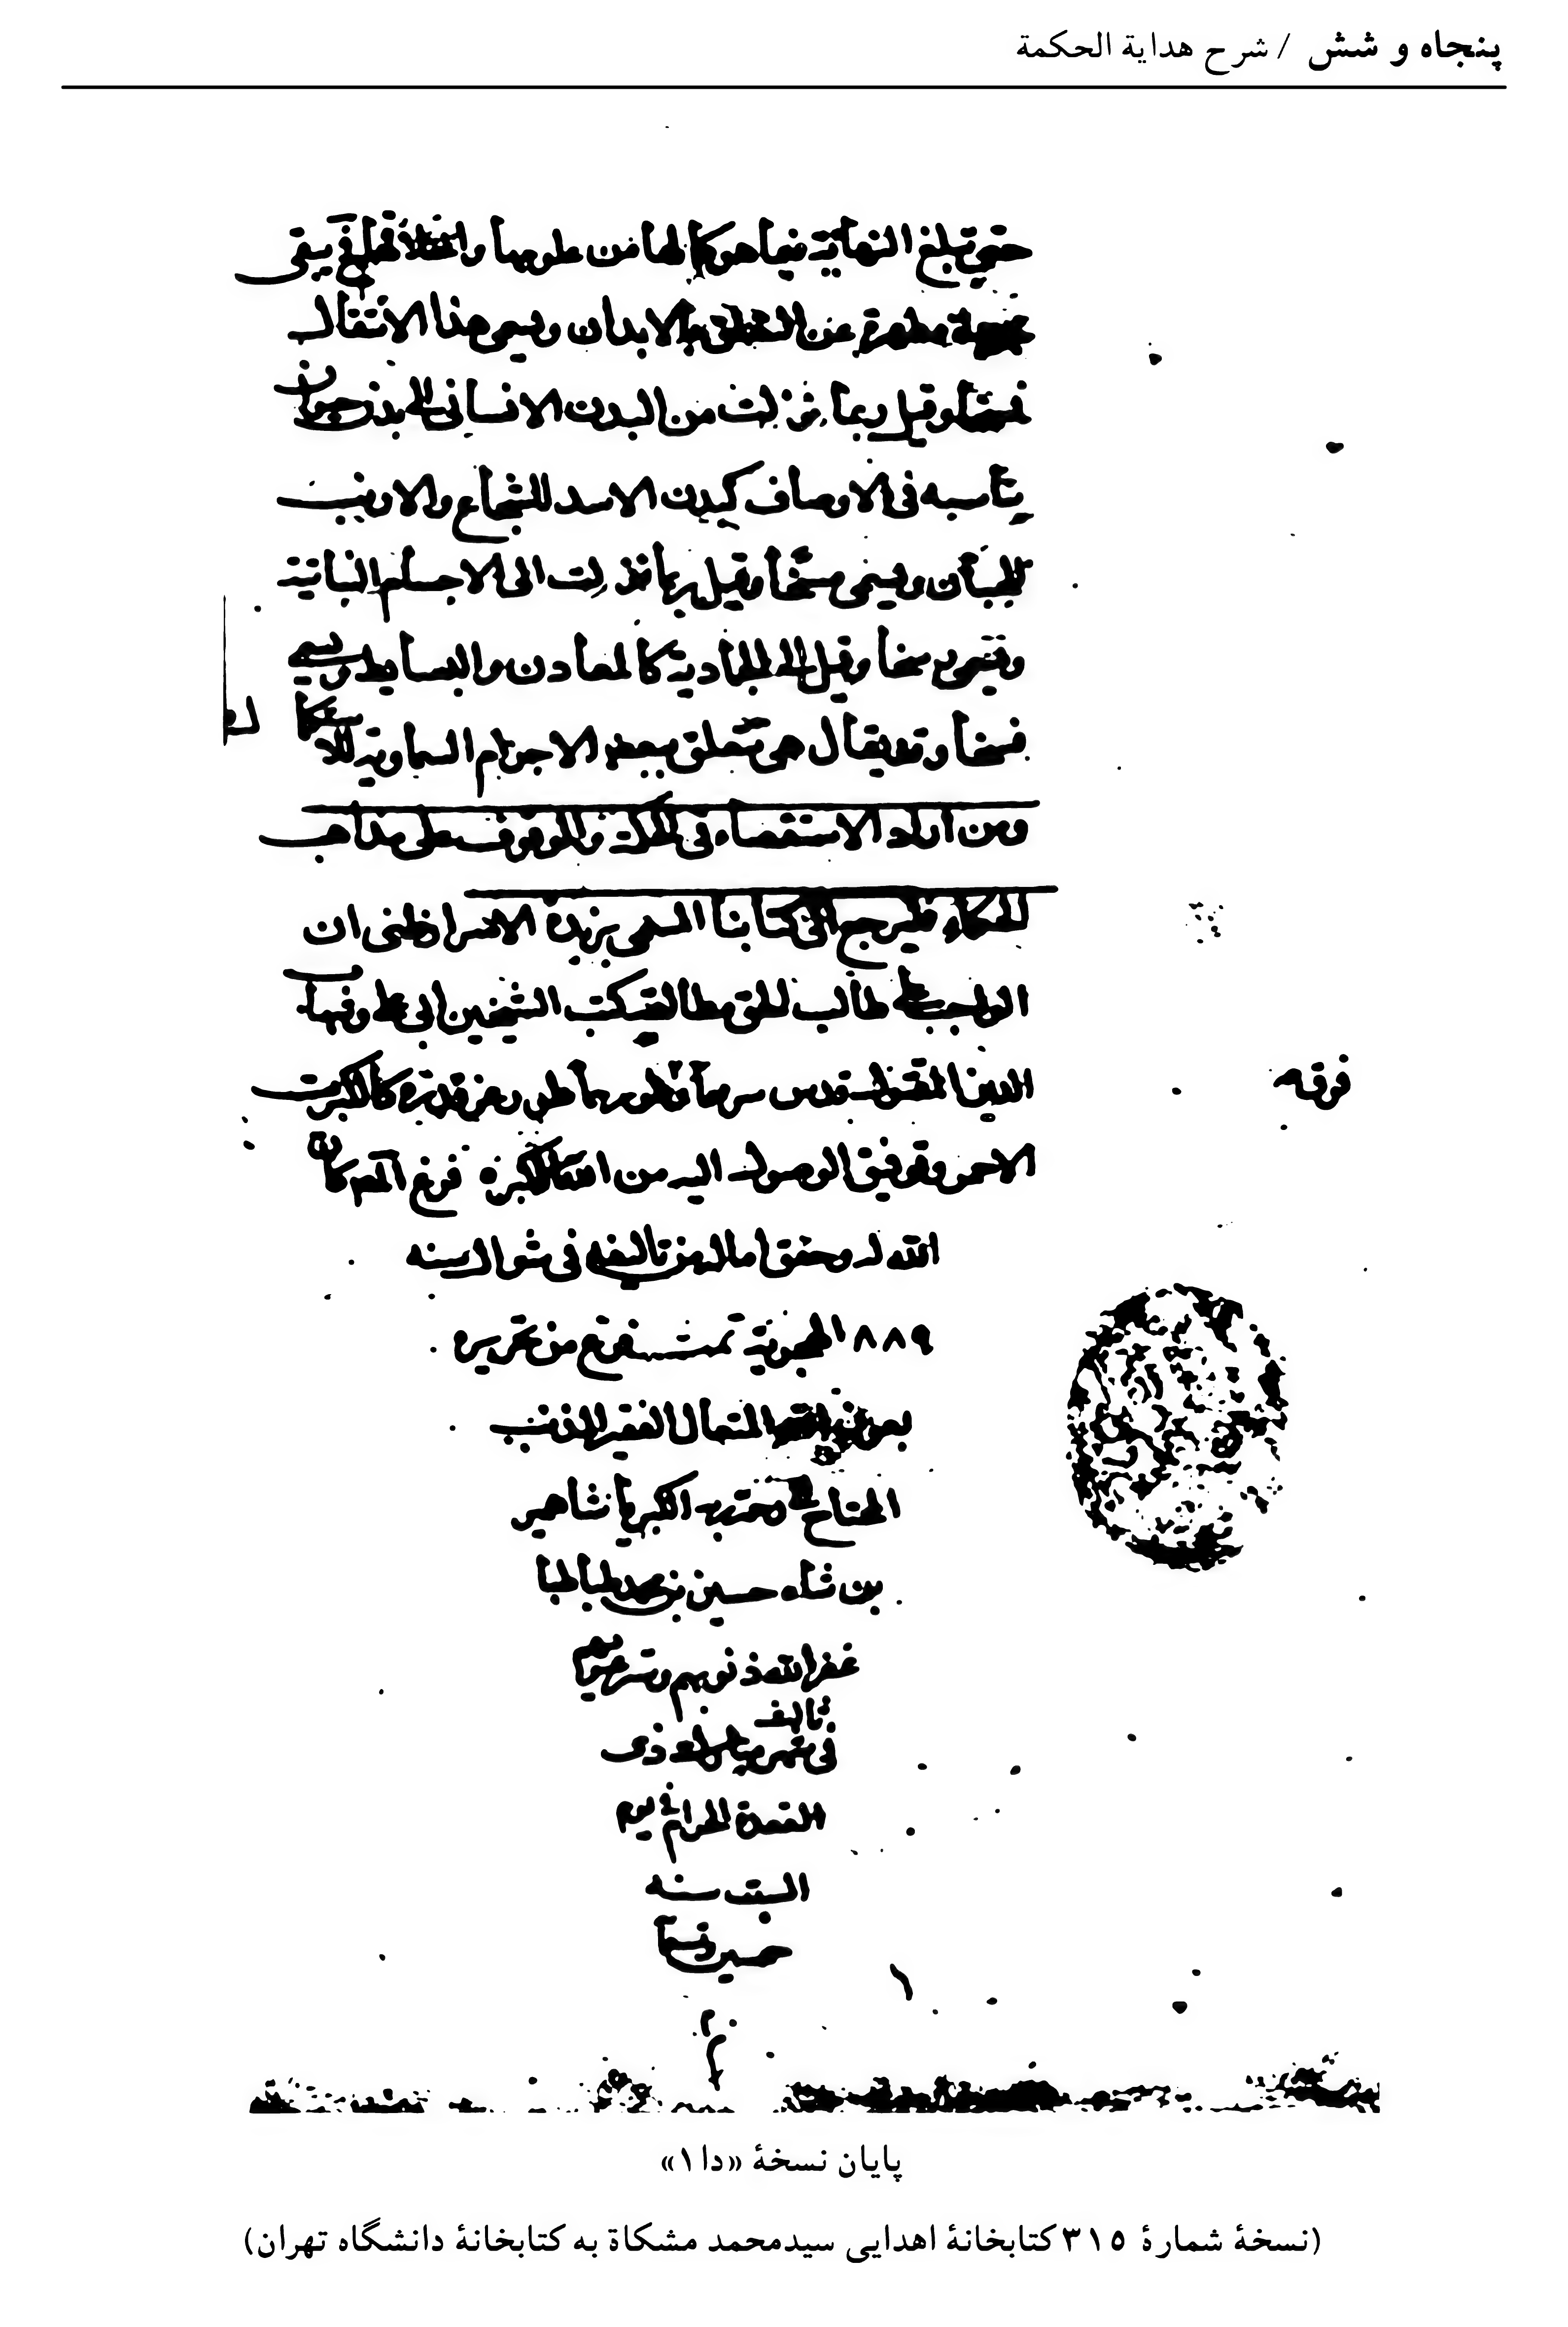 پنجاه و شش / شرح هداية الحكمة
حتى تبلغ النهاية فيما هو كمالها من علومها واخلاقها فح يبقى
مطهرة عن التعلق بالابدان ويسمى هذا الانتقال
نسخا وقيل ربما نزلت من البدن الانسانى الى بدن حيوان
يناسبه فى الاوصاف كبدن الاسد للشجاع والارنب
للجبان ويسمى مسخا وقيل ربما نزلت الى الاجسام النباتية
ويسمى رسخا وقيل الى الجمادية كالمعادن والبسايط ويسمى
فسخا وقد يقال هى تتعلق ببعض الاجرام السماوية
ومن اراد الاستقصاء فى الحكمة والوقوف على مذاهب
الحكماء فليرجع الى كتابنا المسمى بزبدة الاسرار وظنى ان
الواجب على طالب الحق مطالعة كتب الشيخين ابى على وشهاب
الدين المقتول قدس سرهما
فوقه
الاحمر وتوفيق الوصول اليه من الله
الله له وحقق اماله من تاليفه فى شوال سنه
٨٨٩ الهجرية تمت فرغ من تحريره
بعون الله المتعال الفقير المذنب
المحتاج الى
بن شاه حسين بن محمد طباطبا
غفر الله ذنوبهم وستر عيوبهم
ثالث
فى شهر ذى
القعدة الحرام فى يوم
السبت سنه
پایان نسخهٔ «دا١»
(نسخهٔ شمارهٔ ٣١٥ کتابخانهٔ اهدایی سیدمحمد مشکاة به کتابخانهٔ دانشگاه تهران)